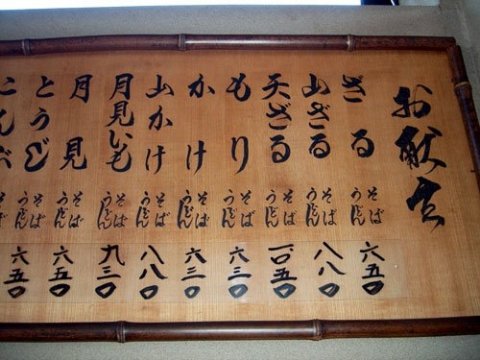 お献立
ざる そば うどん 六五〇
山ざる そば うどん 八八〇
天ざる そば うどん 一〇五〇
もり そば うどん 六三〇
かけ そば うどん 六三〇
山かけ そば うどん 八八〇
月見いも そば うどん 九三〇
月見 そば うどん 六五〇
とうじ そば うどん 六五〇
こんぶ